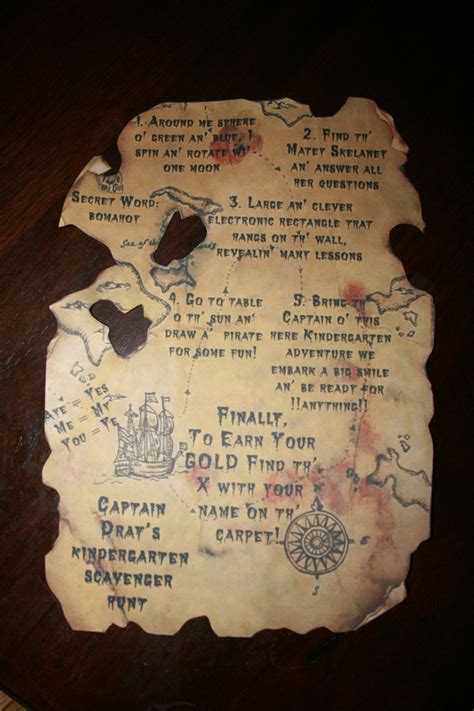 1. Around me sphere
o' green an' blue, I
spin an' rotate wi'
one moon
2. Find th'
Matey Skelaney
an' answer all
her questions
Secret Word:
bomahoy
3. Large an' clever
electronic rectangle that
hangs on th' wall,
revealin' many lessons
Sea of the
4. Go to table
o' th' sun an'
draw a' pirate
for some fun!
5. Bring th'
Captain o' this
here Kindergarten
adventure we
embark a big smile
an' be ready for
!!anything!!
Aye = Yes
Me = My
You = Ye
Finally,
To Earn Your
GOLD Find th'
X with your
name on th'
carpet!
Captain
Drat's
kindergarten
scavenger
hunt
E
S